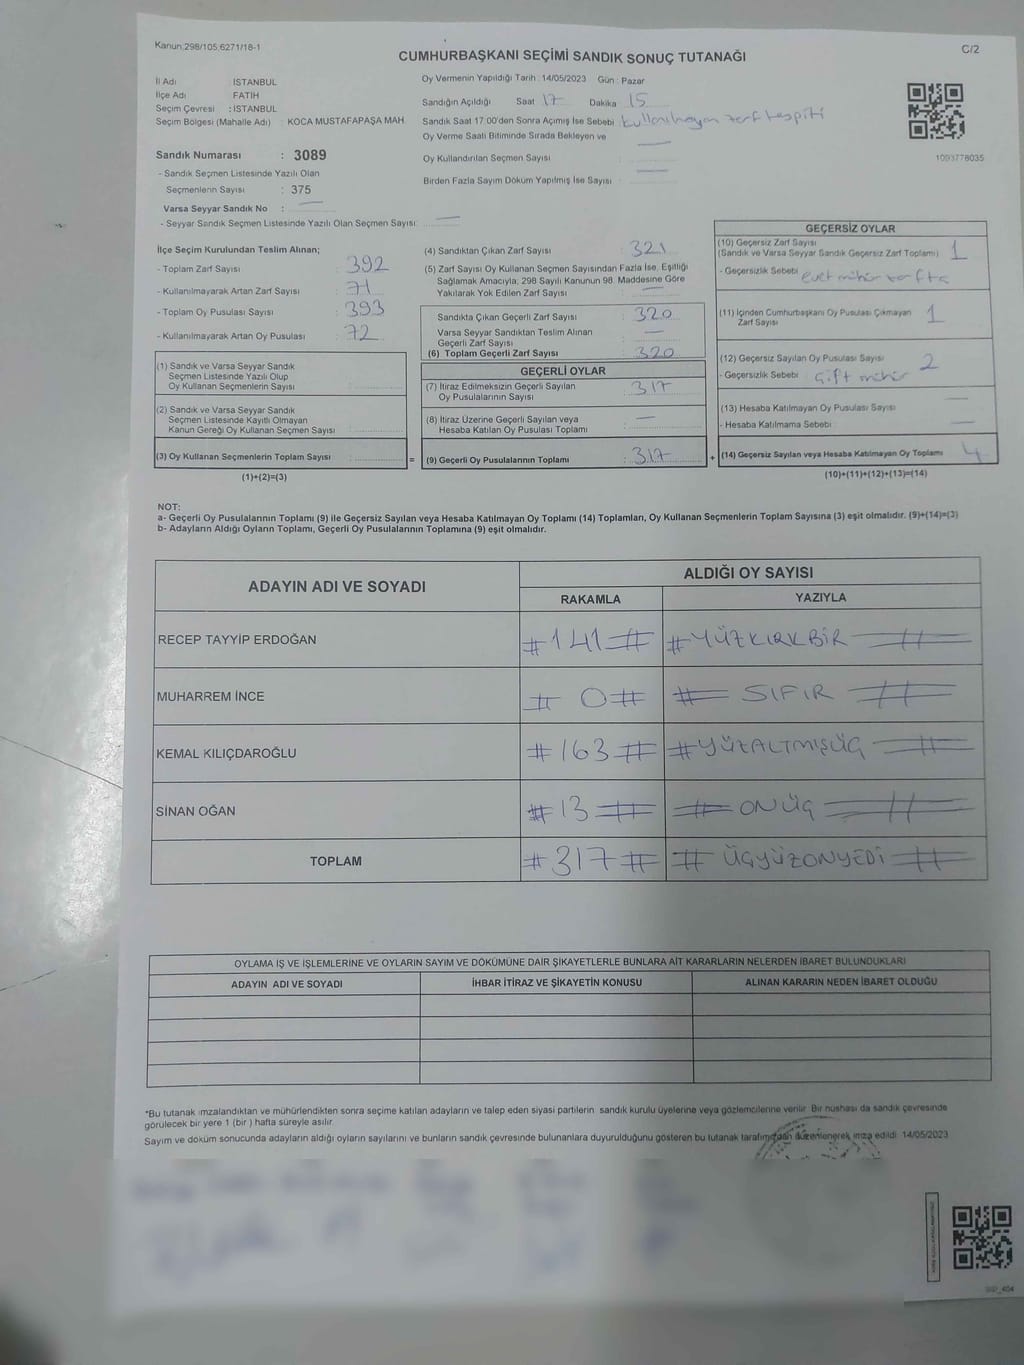 Kanun:298/105;6271/18-1
C/2
CUMHURBAŞKANI SEÇİMİ SANDIK SONUÇ TUTANAĞI
İl Adı : İSTANBUL
İlçe Adı : FATİH
Seçim Çevresi : İSTANBUL
Seçim Bölgesi (Mahalle Adı) : KOCA MUSTAFAPAŞA MAH.
Sandık Numarası : 3089
- Sandık Seçmen Listesinde Yazılı Olan
Seçmenlerin Sayısı : 375
Varsa Seyyar Sandık No : —
- Seyyar Sandık Seçmen Listesinde Yazılı Olan Seçmen Sayısı: —
Oy Vermenin Yapıldığı Tarih : 14/05/2023 Gün : Pazar
Sandığın Açıldığı Saat 17 Dakika 15
Sandık Saat 17:00'den Sonra Açılmış İse Sebebi kullanılmayan zarf tespiti
Oy Verme Saati Bitiminde Sırada Bekleyen ve
Oy Kullandırılan Seçmen Sayısı : —
Birden Fazla Sayım Döküm Yapılmış İse Sayısı : —
1093778035
İlçe Seçim Kurulundan Teslim Alınan;
- Toplam Zarf Sayısı : 392
- Kullanılmayarak Artan Zarf Sayısı : 71
- Toplam Oy Pusulası Sayısı : 393
- Kullanılmayarak Artan Oy Pusulası : 72
(1) Sandık ve Varsa Seyyar Sandık
Seçmen Listesinde Yazılı Olup
Oy Kullanan Seçmenlerin Sayısı :
(2) Sandık ve Varsa Seyyar Sandık
Seçmen Listesinde Kayıtlı Olmayan
Kanun Gereği Oy Kullanan Seçmen Sayısı :
(3) Oy Kullanan Seçmenlerin Toplam Sayısı :
(1)+(2)=(3)
(4) Sandıktan Çıkan Zarf Sayısı : 321
(5) Zarf Sayısı Oy Kullanan Seçmen Sayısından Fazla İse, Eşitliği
Sağlamak Amacıyla; 298 Sayılı Kanunun 98. Maddesine Göre
Yakılarak Yok Edilen Zarf Sayısı : —
Sandıkta Çıkan Geçerli Zarf Sayısı : 320
Varsa Seyyar Sandıktan Teslim Alınan
Geçerli Zarf Sayısı : —
(6) Toplam Geçerli Zarf Sayısı : 320
GEÇERLİ OYLAR
(7) İtiraz Edilmeksizin Geçerli Sayılan
Oy Pusulalarının Sayısı : 317
(8) İtiraz Üzerine Geçerli Sayılan veya
Hesaba Katılan Oy Pusulası Toplamı : —
= (9) Geçerli Oy Pusulalarının Toplamı : 317
GEÇERSİZ OYLAR
(10) Geçersiz Zarf Sayısı
(Sandık ve Varsa Seyyar Sandık Geçersiz Zarf Toplamı) : 1
- Geçersizlik Sebebi : evet mühür tarfta
(11) İçinden Cumhurbaşkanı Oy Pusulası Çıkmayan
Zarf Sayısı : 1
(12) Geçersiz Sayılan Oy Pusulası Sayısı : 2
- Geçersizlik Sebebi : Çift mühür
(13) Hesaba Katılmayan Oy Pusula Sayısı : —
- Hesaba Katılmama Sebebi : —
+ (14) Geçersiz Sayılan veya Hesaba Katılmayan Oy Toplamı : 4
(10)+(11)+(12)+(13)=(14)
NOT:
a- Geçerli Oy Pusulalarının Toplamı (9) ile Geçersiz Sayılan veya Hesaba Katılmayan Oy Toplamı (14) Toplamları, Oy Kullanan Seçmenlerin Toplam Sayısına (3) eşit olmalıdır. (9)+(14)=(3)
b- Adayların Aldığı Oyların Toplamı, Geçerli Oy Pusulalarının Toplamına (9) eşit olmalıdır.
ADAYIN ADI VE SOYADI ALDIĞI OY SAYISI
RAKAMLA YAZIYLA
RECEP TAYYİP ERDOĞAN # 141 # # YÜZKIRKBİR #
MUHARREM İNCE # 0 # # SIFIR #
KEMAL KILIÇDAROĞLU # 163 # # YÜZALTMIŞÜÇ #
SİNAN OĞAN # 13 # # ONÜÇ #
TOPLAM # 317 # # ÜÇYÜZONYEDİ #
OYLAMA İŞ VE İŞLEMLERİNE VE OYLARIN SAYIM VE DÖKÜMÜNE DAİR ŞİKAYETLERLE BUNLARA AİT KARARLARIN NELERDEN İBARET BULUNDUKLARI
ADAYIN ADI VE SOYADI İHBAR İTİRAZ VE ŞİKAYETİN KONUSU ALINAN KARARIN NEDEN İBARET OLDUĞU
*Bu tutanak imzalandıktan ve mühürlendikten sonra seçime katılan adayların ve talep eden siyasi partilerin sandık kurulu üyelerine veya gözlemcilerine verilir. Bir nüshası da sandık çevresinde
görülecek bir yere 1 (bir ) hafta süreyle asılır.
Sayım ve döküm sonucunda adayların aldığı oyların sayılarını ve bunların sandık çevresinde bulunanlara duyurulduğunu gösteren bu tutanak tarafımızdan düzenlenerek imza edildi. 14/05/2023